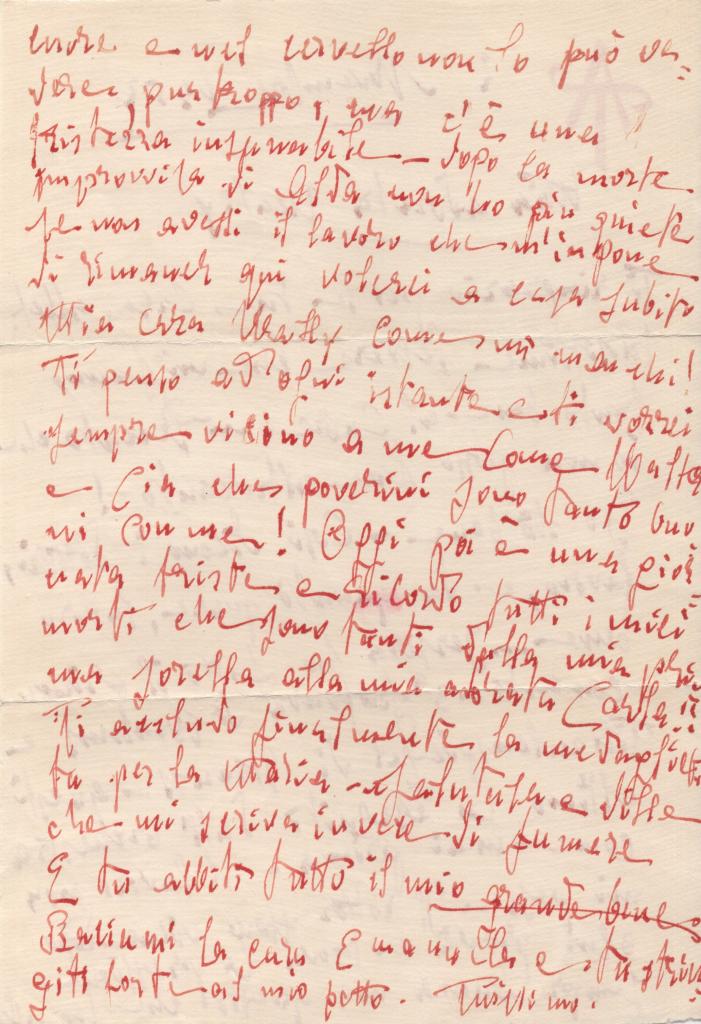 cuore e nel cervello non lo può ve=
dere purtroppo, ma c'è una
tristezza insanabile – dopo la morte
improvvisa di Alda non ho più quiete
se non avessi il lavoro che m'impone
di rimaner qui volerei a casa subito
Mia cara Wally come mi manchi!
Ti penso ad ogni istante e ti vorrei
sempre vicino a me come
e Cia che poverini sono tanto buo
ni con me! Oggi poi è una gior
nata triste e ricordo tutti i miei
morti, che sono tanti dalla mia pri=
ma sorella alla mia adorata Carla!!
Ti accludo finalmente la medagliet
ta per la Maria – salutala e dille
che mi scriva invece di fumare
E tu abbiti tutto il mio grande bene
Baciami la cara Emanuela e tu strin
giti forte al mio petto. Tuissimo.